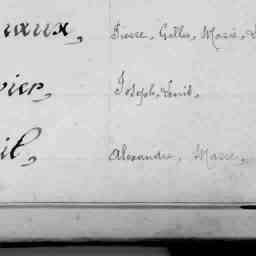 Pierre, Gilles, Marie,
vier, Joseph, Louis,
il, Alexandre, Marie,